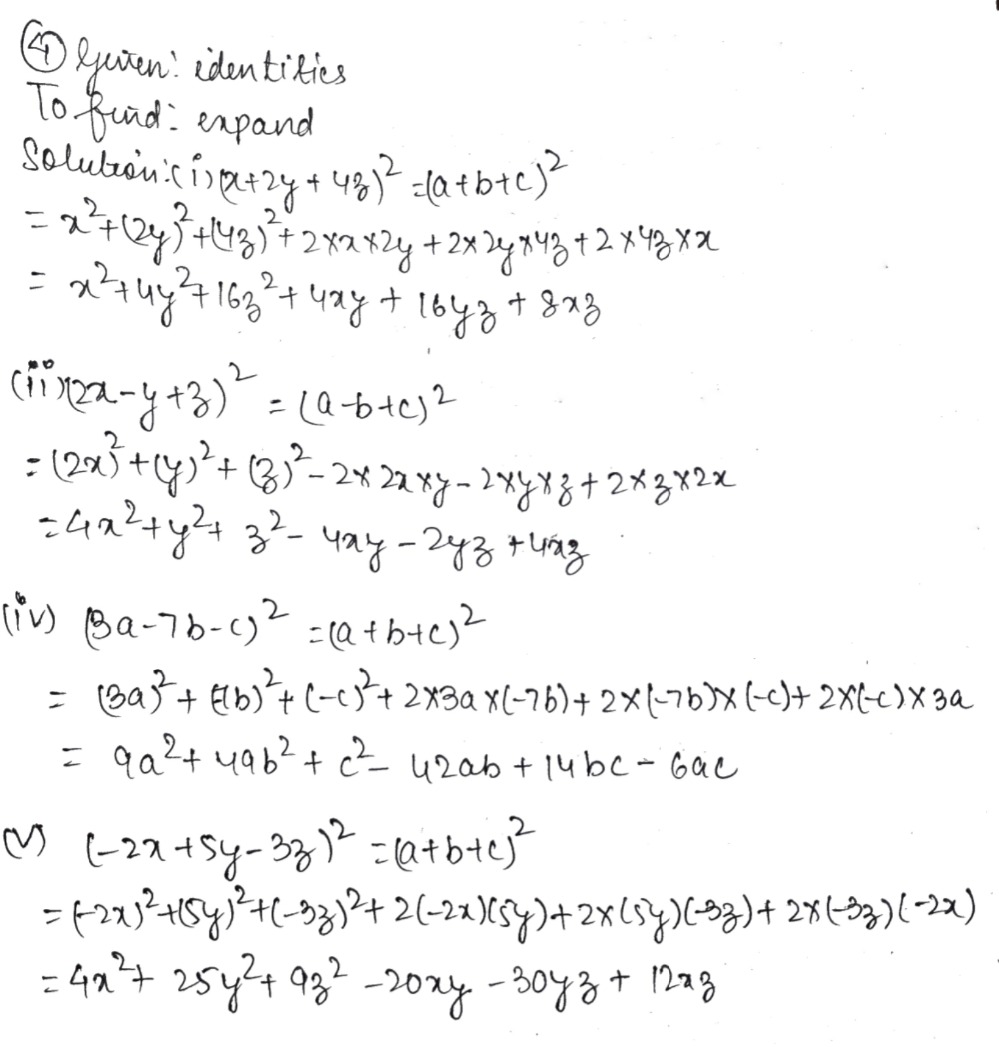 ④ Given: identities
To find: expand
Solution: (i) (x+2y+4z)² = (a+b+c)²
= x²+(2y)²+(4z)²+2×x×2y+2×2y×4z+2×4z×x
= x²+4y²+16z²+4xy+16yz+8xz
(ii) (2x-y+z)² = (a-b+c)²
= (2x)²+(y)²+(z)²-2×2x×y-2×y×z+2×z×2x
= 4x²+y²+z²-4xy-2yz+4xz
(iv) (3a-7b-c)² = (a+b+c)²
= (3a)²+(-7b)²+(-c)²+2×3a×(-7b)+2×(-7b)×(-c)+2×(-c)×3a
= 9a²+49b²+c²-42ab+14bc-6ac
(v) (-2x+5y-3z)² = (a+b+c)²
= (-2x)²+(5y)²+(-3z)²+2(-2x)(5y)+2×(5y)(-3z)+2×(-3z)(-2x)
= 4x²+25y²+9z²-20xy-30yz+12xz